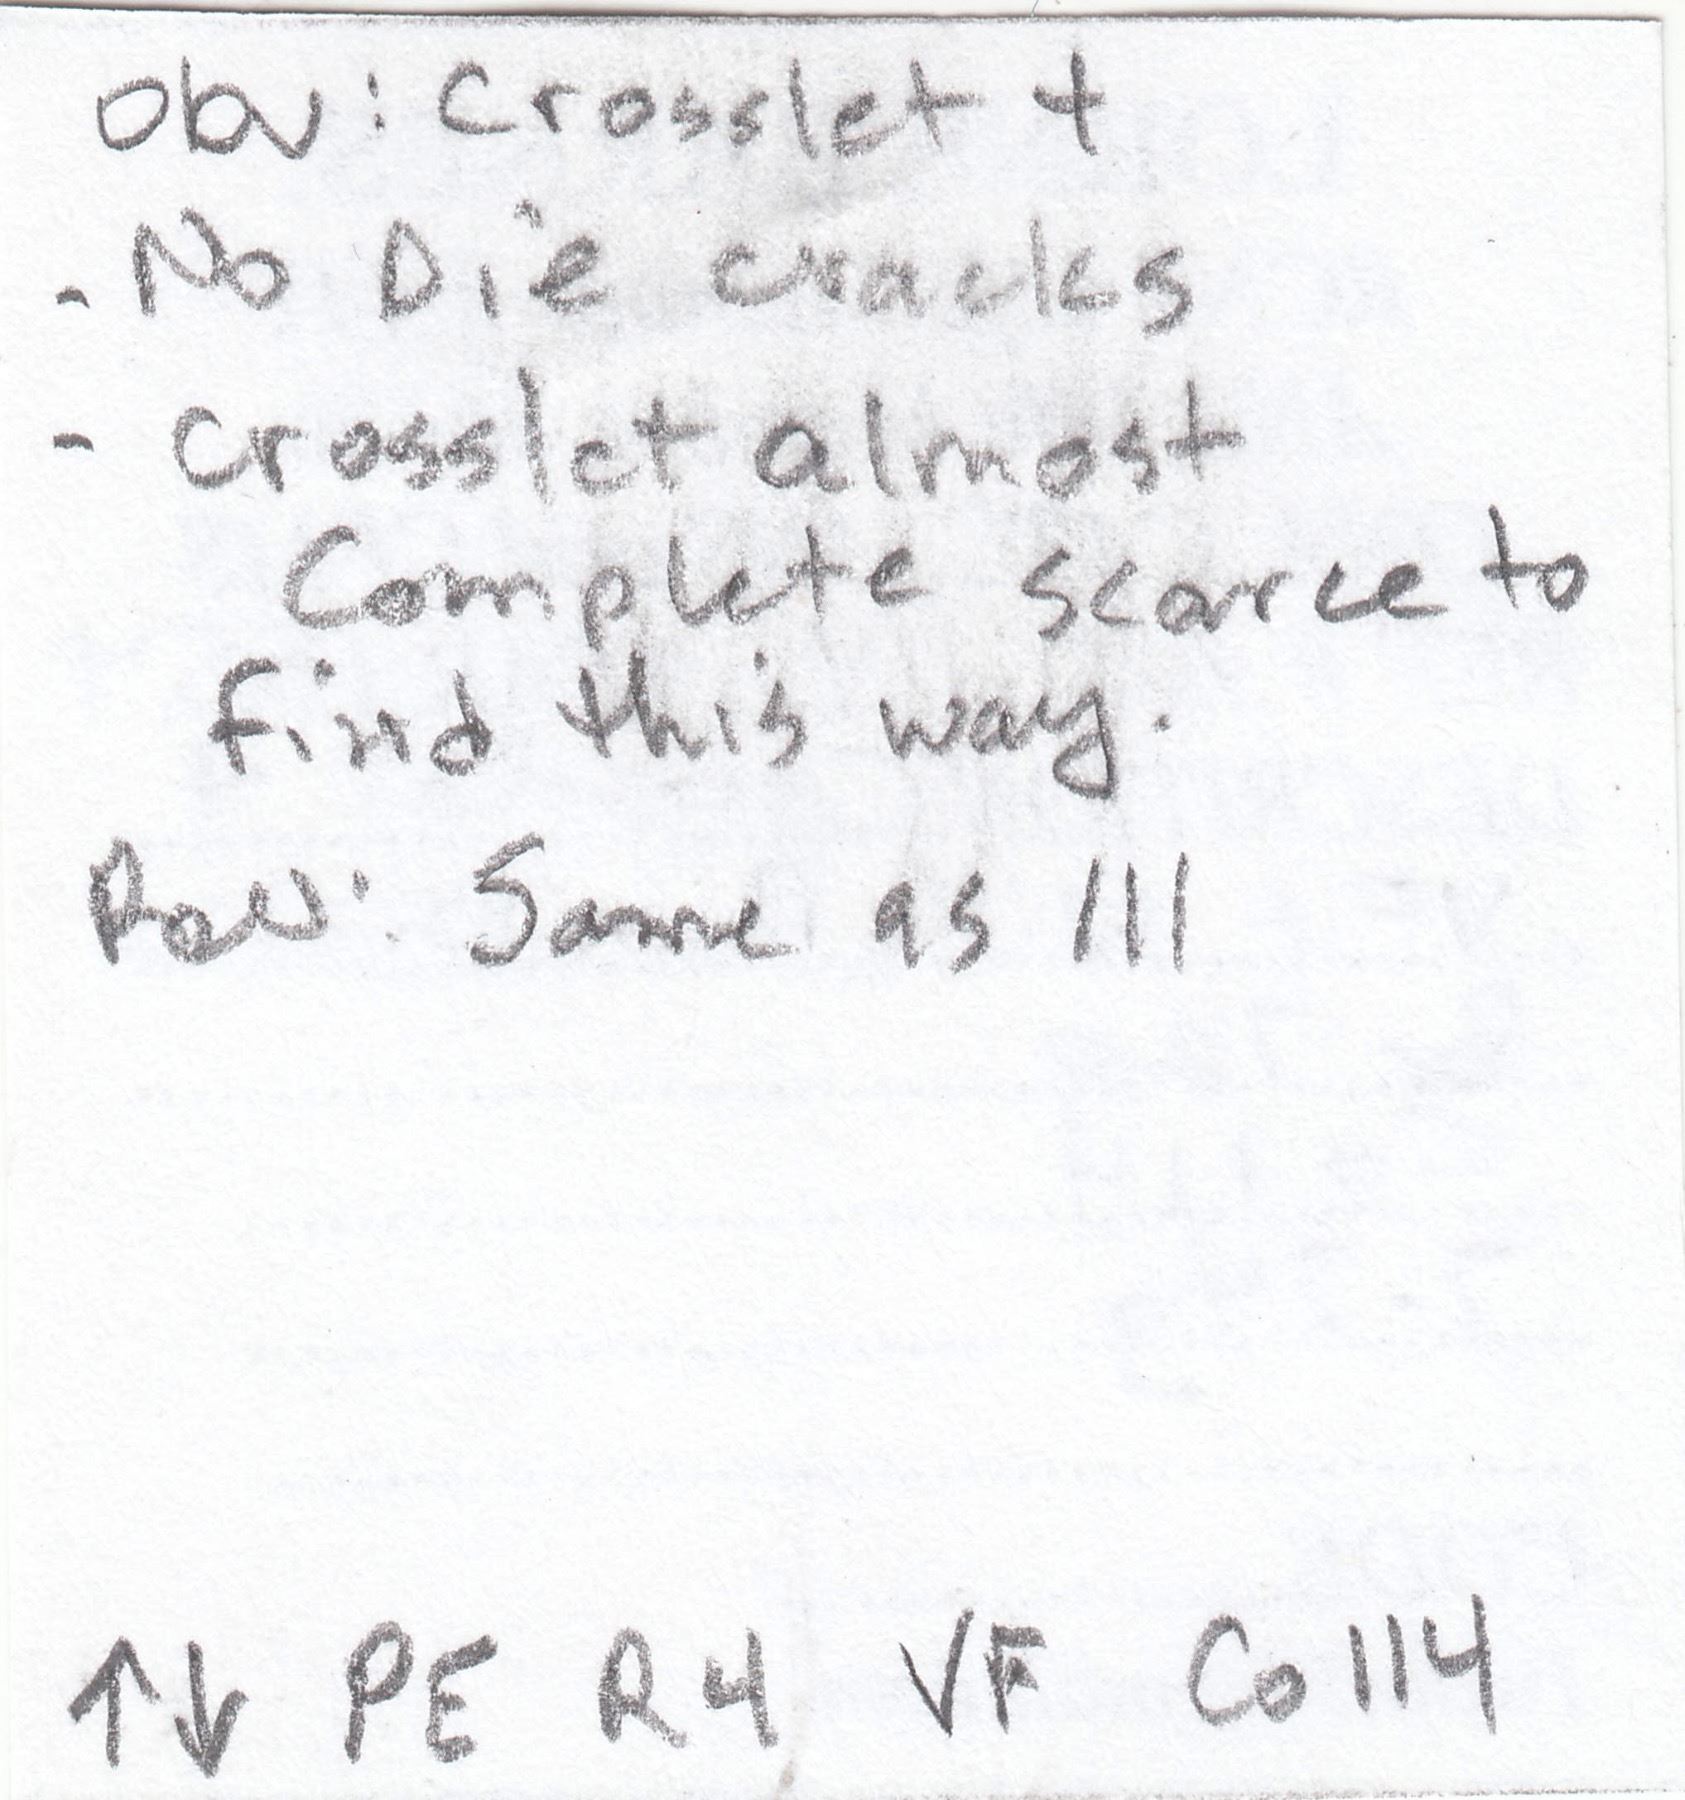 Obv: Crosslet t
- No Die cracks
- Crosslet almost
Complete scarce to
find this way.
Rev: Same as 111
↑↓ PE R4 VF Co 114